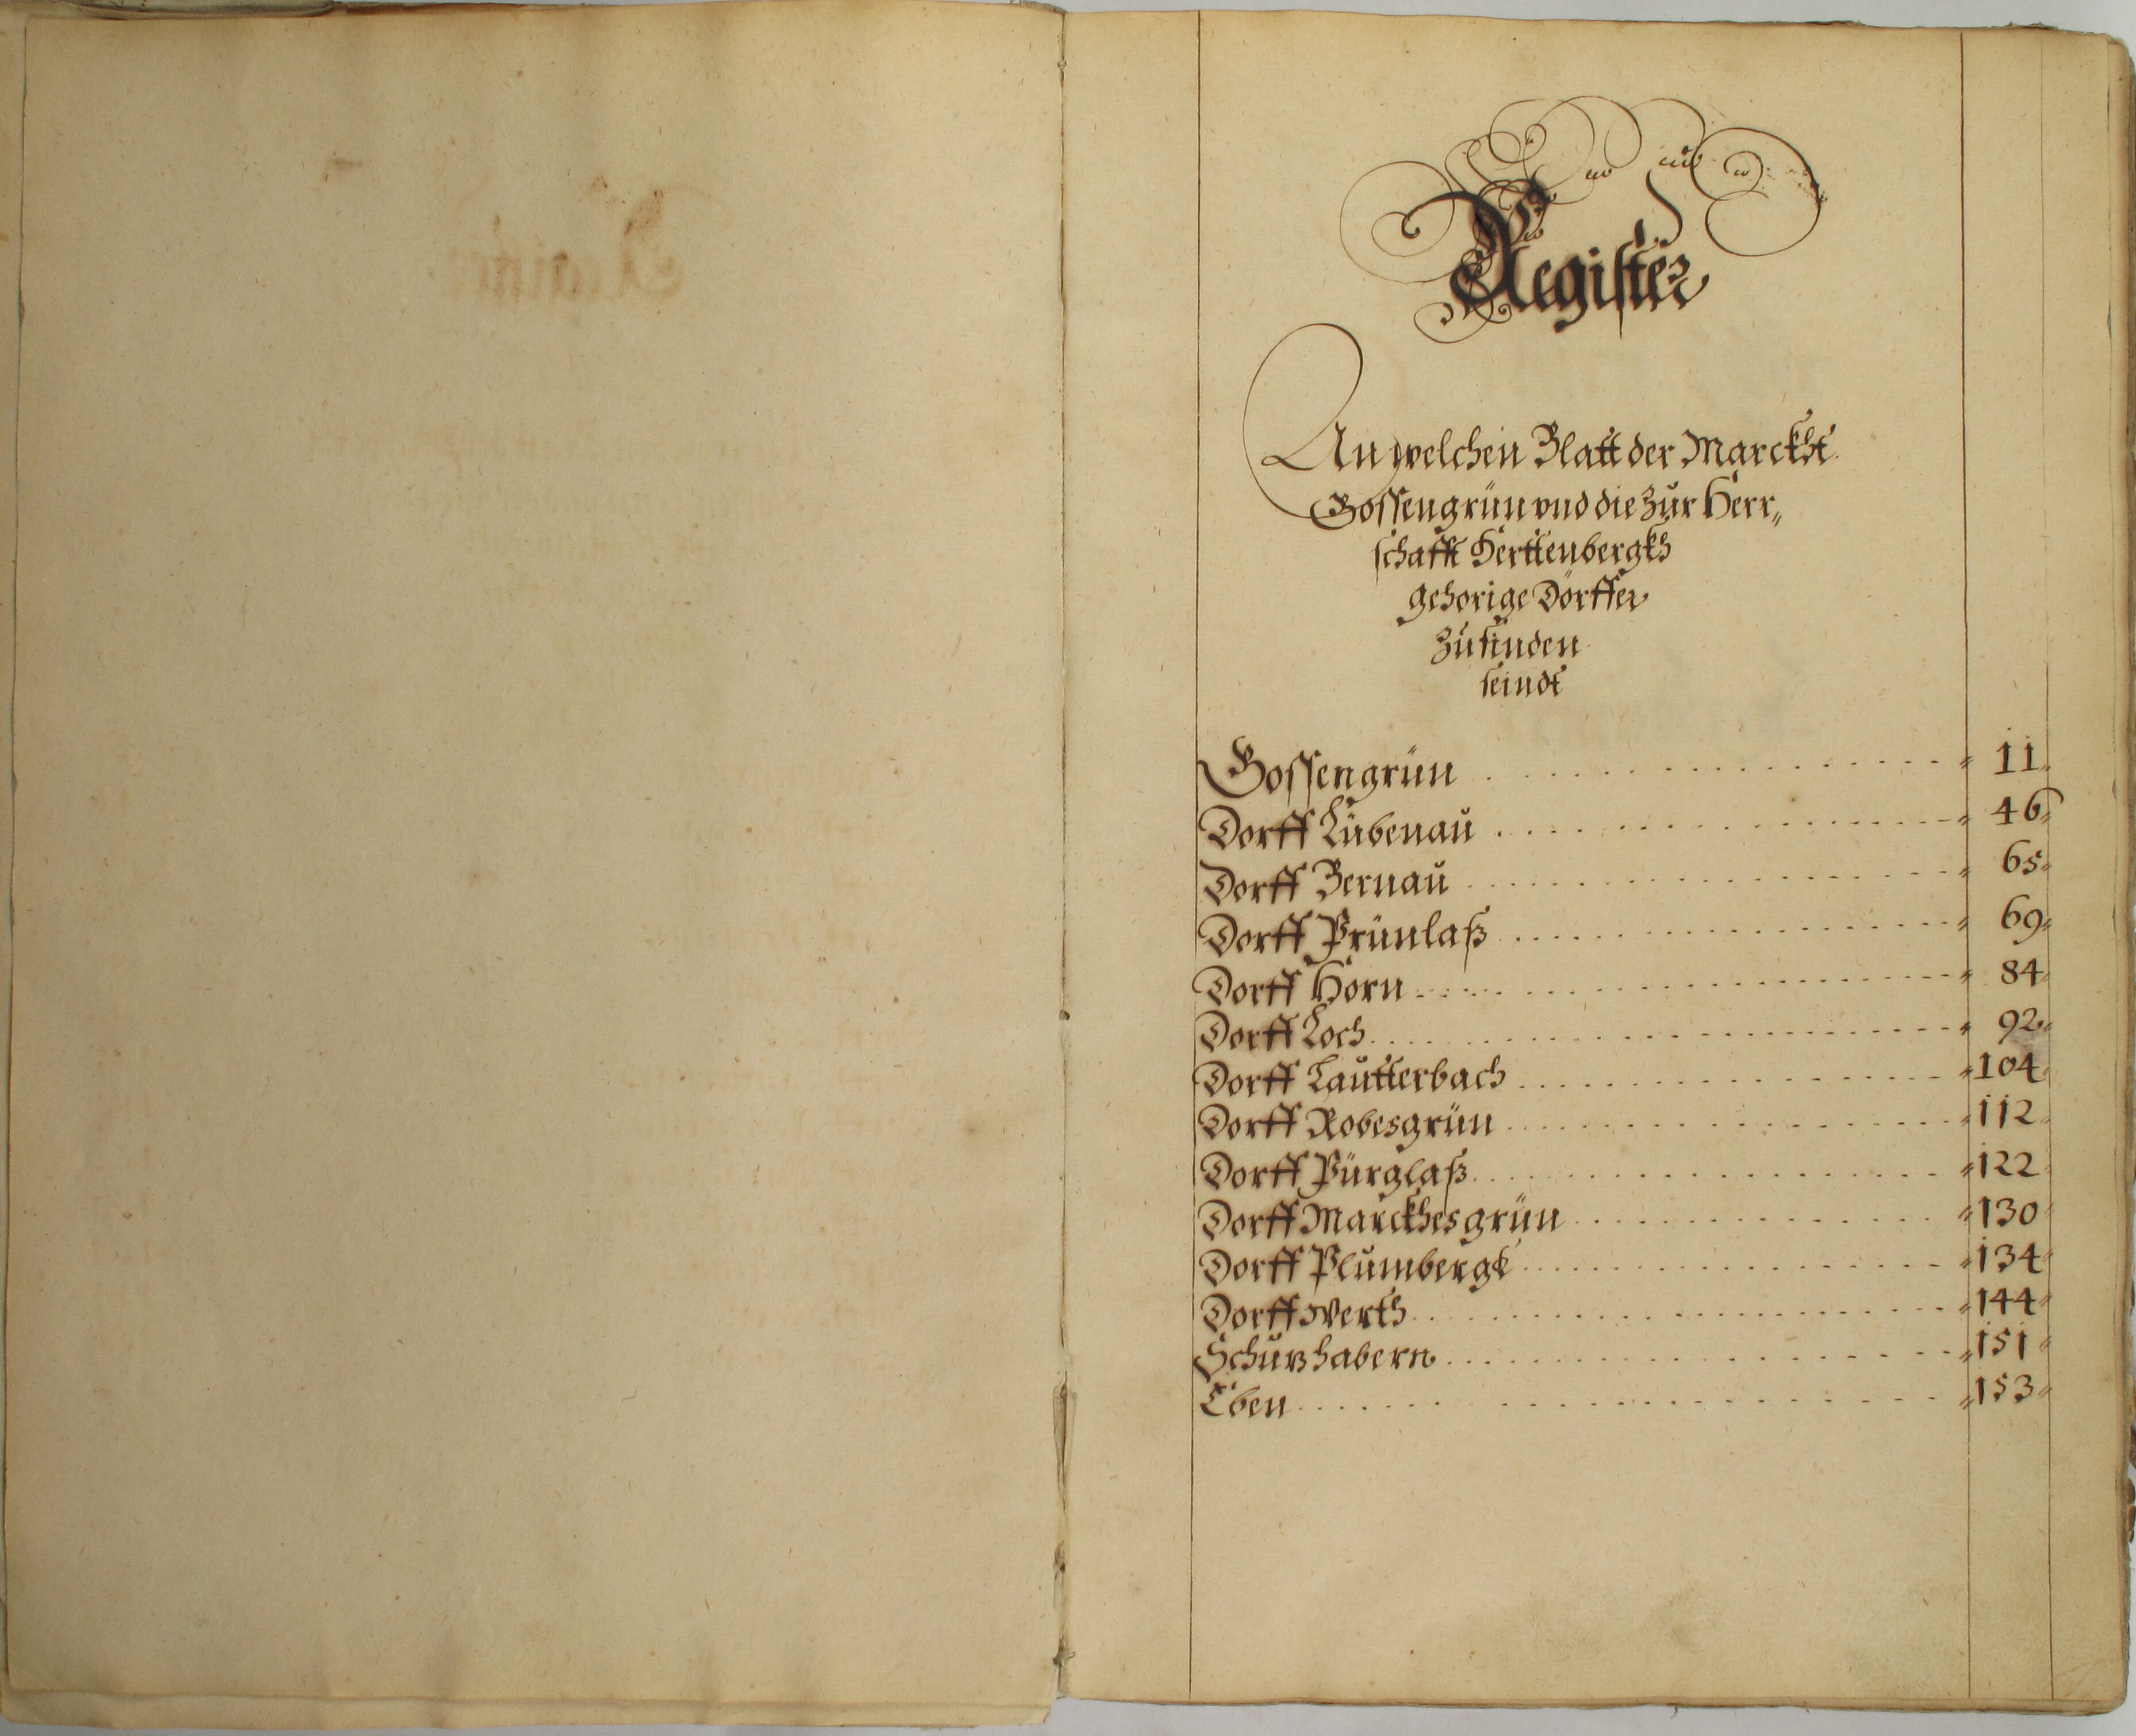 Register
An welchen Blatt der Marckht
Gossengrün vnd die zur Herr„
schafft Herttenbergkh
gehorige Dörffer
zufinden
seindt
Gossengrün . . . . . . . . . . 11
Dorff Lübenaŭ . . . . . . . . . . 46
Dorff Bernaŭ . . . . . . . . . . 65
Dorff Prünlaß . . . . . . . . . . 69
Dorff Horn . . . . . . . . . . 84
Dorff Loch . . . . . . . . . . 92
Dorff Laŭtterbach . . . . . . . . . . 104
Dorff Robesgrün . . . . . . . . . . 112
Dorff Pürglaß . . . . . . . . . . 122
Dorff Marckhesgrün . . . . . . . . . . 130
Dorff Plŭmbergk . . . . . . . . . . 134
Dorff Werth . . . . . . . . . . 144
Schŭzhabern . . . . . . . . . . 151
Eben . . . . . . . . . . 153